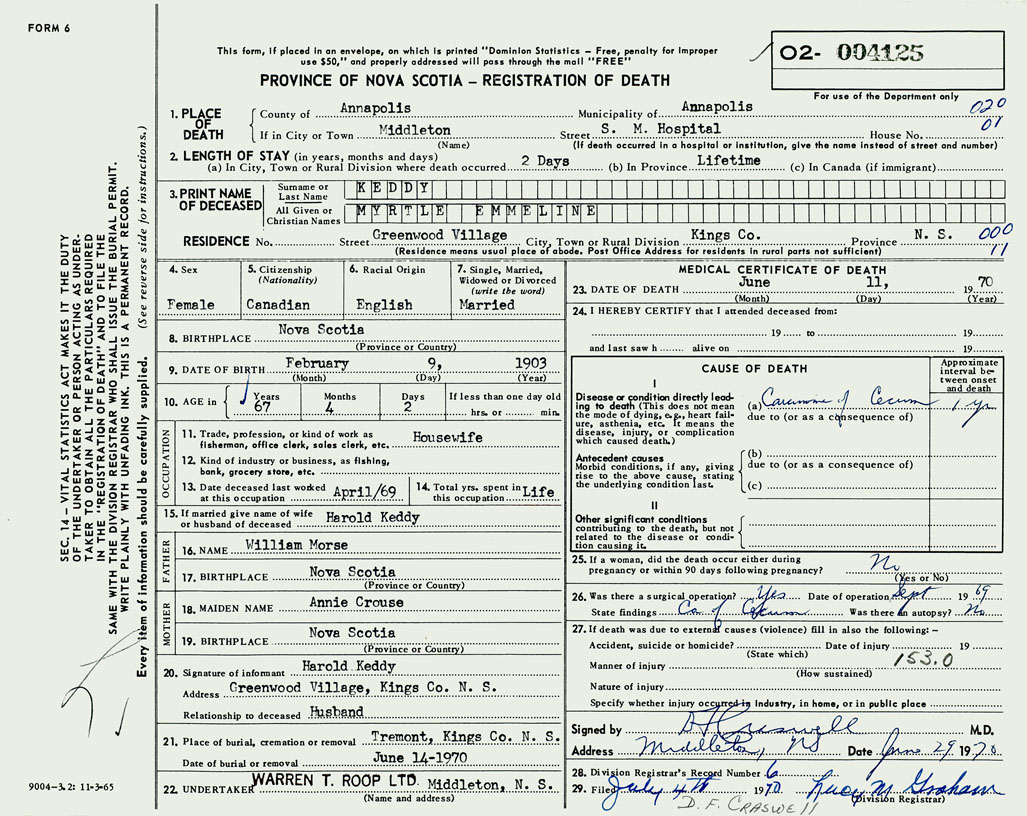 FORM 6
This form, if placed in an envelope, on which is printed "Dominion Statistics – Free, penalty for improper
use $50," and properly addressed will pass through the mail "FREE"
O2- 004125
PROVINCE OF NOVA SCOTIA – REGISTRATION OF DEATH
For use of the Department only
1. PLACE OF DEATH
County of Annapolis Municipality of Annapolis 020
If in City or Town Middleton Street S. M. Hospital House No. 01
(Name) (If death occurred in a hospital or institution, give the name instead of street and number)
2. LENGTH OF STAY (in years, months and days)
(a) In City, Town or Rural Division where death occurred 2 Days (b) In Province Lifetime (c) In Canada (if immigrant)
3. PRINT NAME OF DECEASED
Surname or Last Name KEDDY
All Given or Christian Names MYRTLE EMMELINE
RESIDENCE No. Street Greenwood Village City, Town or Rural Division Kings Co. Province N. S. 000
(Residence means usual place of abode. Post Office Address for residents in rural parts not sufficient) 11
4. Sex
Female
5. Citizenship
(Nationality)
Canadian
6. Racial Origin
English
7. Single, Married,
Widowed or Divorced
(write the word)
Married
8. BIRTHPLACE Nova Scotia
(Province or Country)
9. DATE OF BIRTH February 9, 1903
(Month) (Day) (Year)
10. AGE in Years Months Days If less than one day old
67 4 2 hrs. or min.
OCCUPATION
11. Trade, profession, or kind of work as Housewife
fisherman, office clerk, sales clerk, etc.
12. Kind of industry or business, as fishing,
bank, grocery store, etc.
13. Date deceased last worked
at this occupation April/69
14. Total yrs. spent in
this occupation Life
15. If married give name of wife
or husband of deceased Harold Keddy
FATHER
16. NAME William Morse
17. BIRTHPLACE Nova Scotia
(Province or Country)
MOTHER
18. MAIDEN NAME Annie Crouse
19. BIRTHPLACE Nova Scotia
(Province or Country)
20. Signature of informant Harold Keddy
Address Greenwood Village, Kings Co. N. S.
Relationship to deceased Husband
21. Place of burial, cremation or removal Tremont, Kings Co. N. S.
Date of burial or removal June 14-1970
22. UNDERTAKER WARREN T. ROOP LTD. Middleton, N. S.
(Name and address)
MEDICAL CERTIFICATE OF DEATH
23. DATE OF DEATH June 11, 1970
(Month) (Day) (Year)
24. I HEREBY CERTIFY that I attended deceased from:
19 to 19
and last saw h alive on 19
CAUSE OF DEATH
Approximate
interval be-
tween onset
and death
I
Disease or condition directly lead-
ing to death (This does not mean
the mode of dying, e.g., heart fail-
ure, asthenia, etc. It means the
disease, injury, or complication
which caused death.)
(a) Carcinoma of Cecum 1 yr
due to (or as a consequence of)
Antecedent causes
Morbid conditions, if any, giving
rise to the above cause, stating
the underlying condition last.
(b)
due to (or as a consequence of)
(c)
II
Other significant conditions
contributing to the death, but not
related to the disease or condi-
tion causing it.
25. If a woman, did the death occur either during
pregnancy or within 90 days following pregnancy? No
(Yes or No)
26. Was there a surgical operation? Yes Date of operation Sept 1969
State findings Ca of Cecum Was there an autopsy? No
27. If death was due to external causes (violence) fill in also the following: –
Accident, suicide or homicide? Date of injury 19
(State which) 153.0
Manner of injury
(How sustained)
Nature of injury
Specify whether injury occurred in industry, in home, or in public place
Signed by D F Craswell M.D.
Address Middleton, NS Date June 29 1970
28. Division Registrar's Record Number 6
29. Filed July 4th 1970 Lucy M Graham
(Division Registrar)
D. F. CRASWELL
SEC. 14 – VITAL STATISTICS ACT MAKES IT THE DUTY
OF THE UNDERTAKER OR PERSON ACTING AS UNDER-
TAKER TO OBTAIN ALL THE PARTICULARS REQUIRED
IN THE "REGISTRATION OF DEATH" AND TO FILE THE
SAME WITH THE DIVISION REGISTRAR WHO SHALL ISSUE THE BURIAL PERMIT.
WRITE PLAINLY WITH UNFADING INK. THIS IS A PERMANENT RECORD.
Every item of information should be carefully supplied. (See reverse side for instructions.)
9004-3.2: 11-3-65